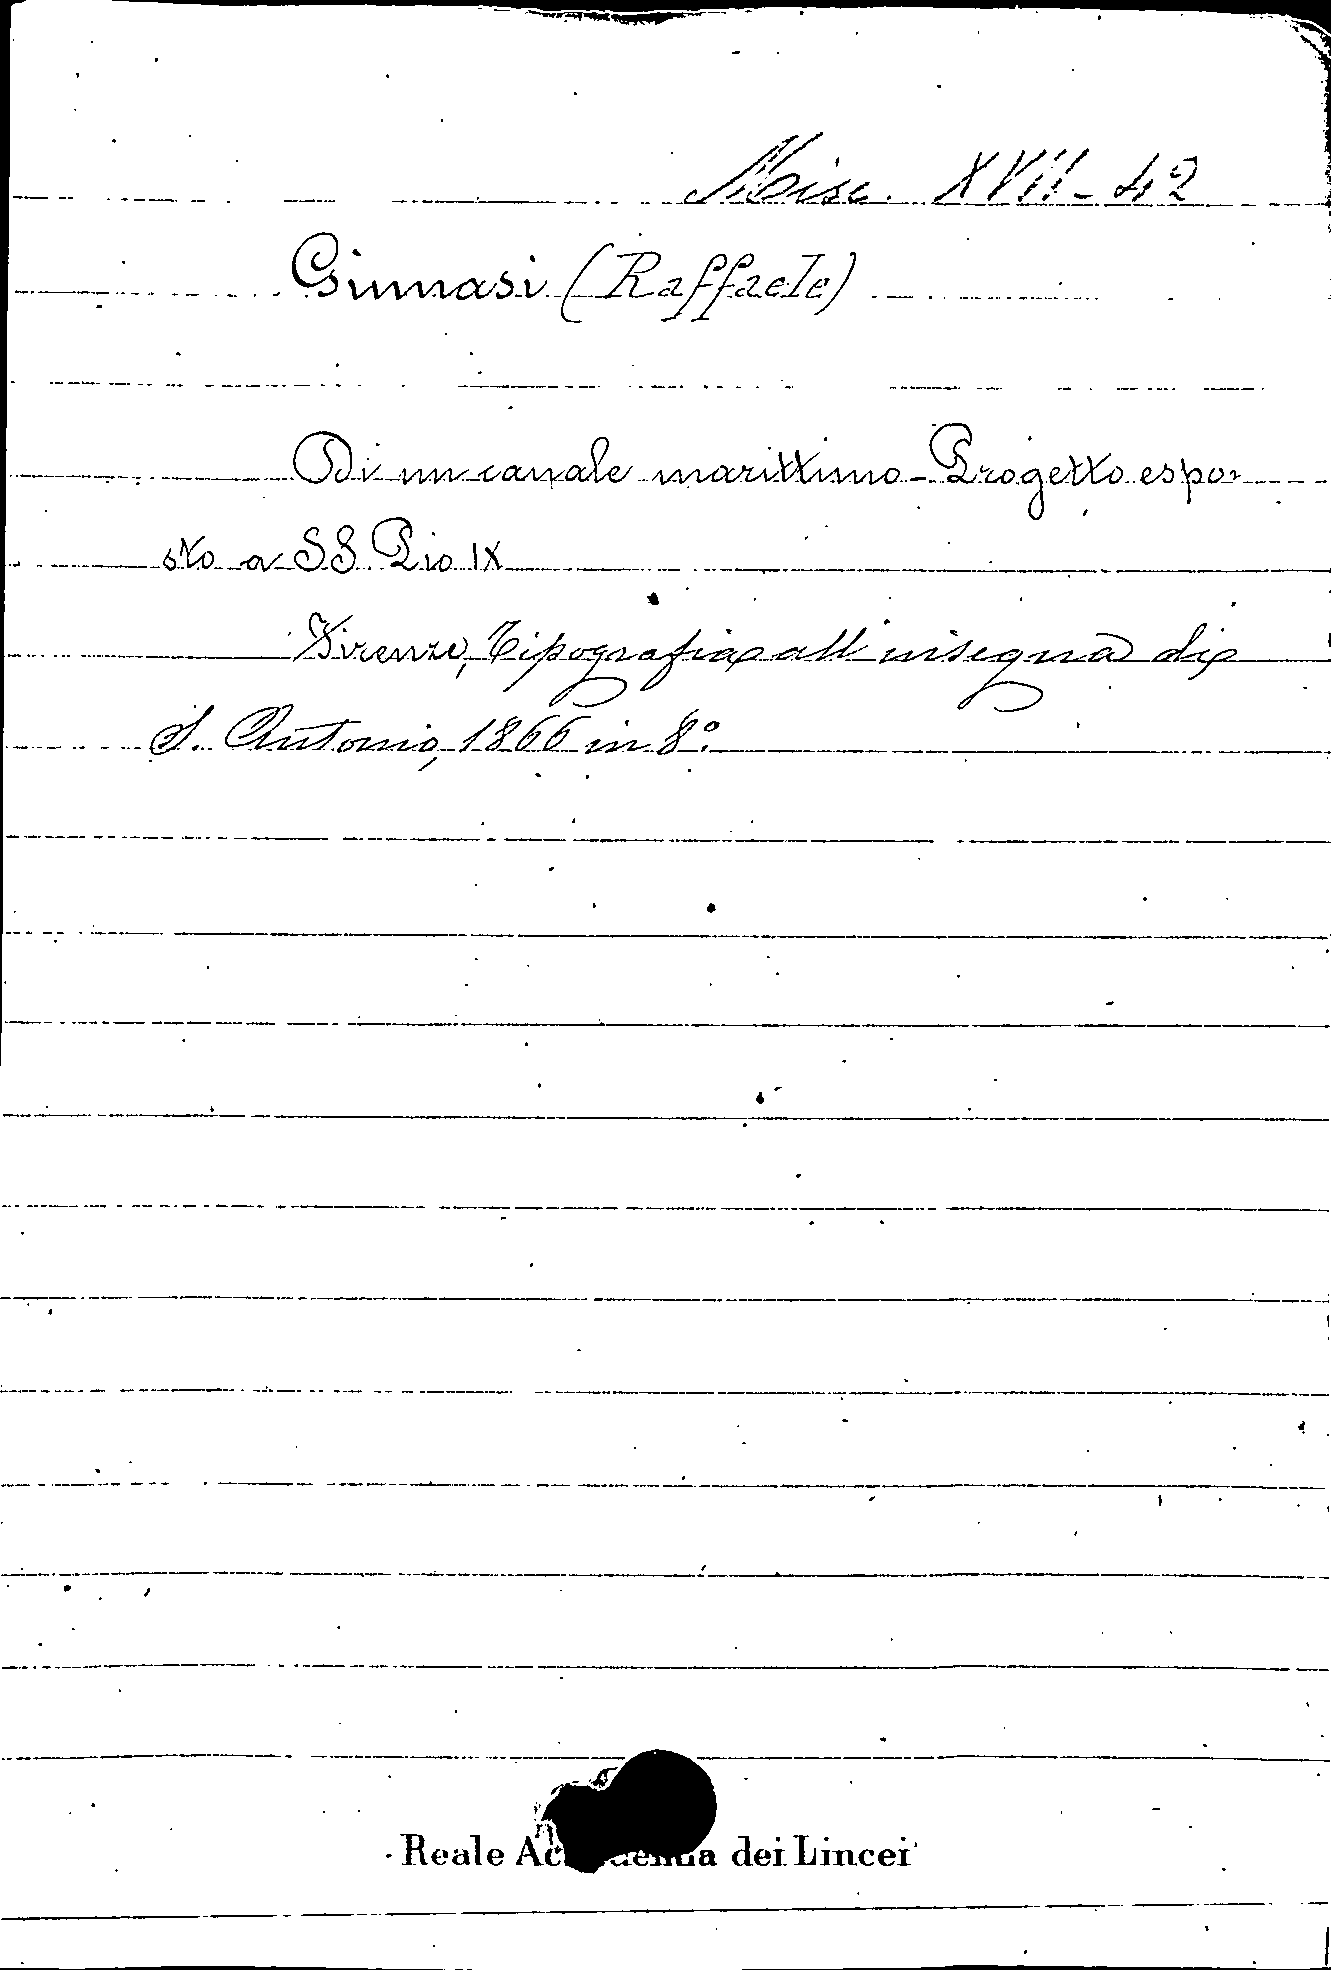 Misc. XVII-42
Ginnasi (Raffaele)
Di un canale marittimo - Progetto espo-
sto a SS. Pio IX
Firenze, Tipografia all'insegna di
S. Antonio, 1866 in 8°.
Reale Accademia dei Lincei